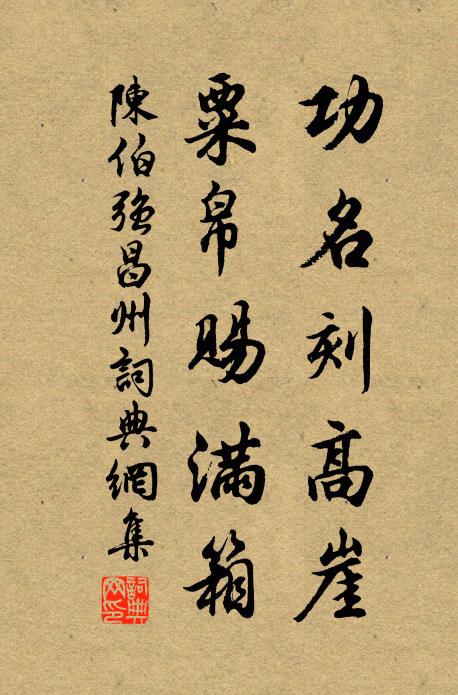 功名刻高崖
粟帛賜滿箱
陳伯強昌州詞典網集
詞典网印